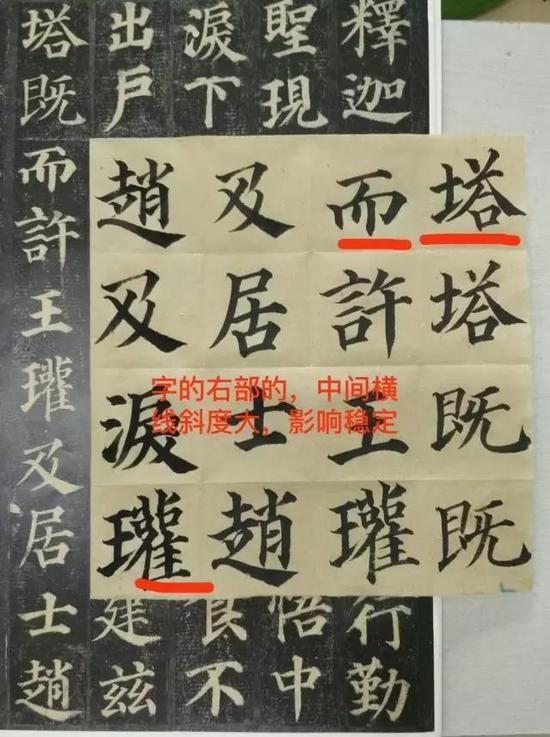 釋迦
聖現
淚下
出戶
塔既而許王瓘及居士趙
塔塔既既
而許王瓘
及居士趙
趙及淚瓘
字的右部的，中间横
线斜度大，影响稳定
行勤
悟中
不
建兹